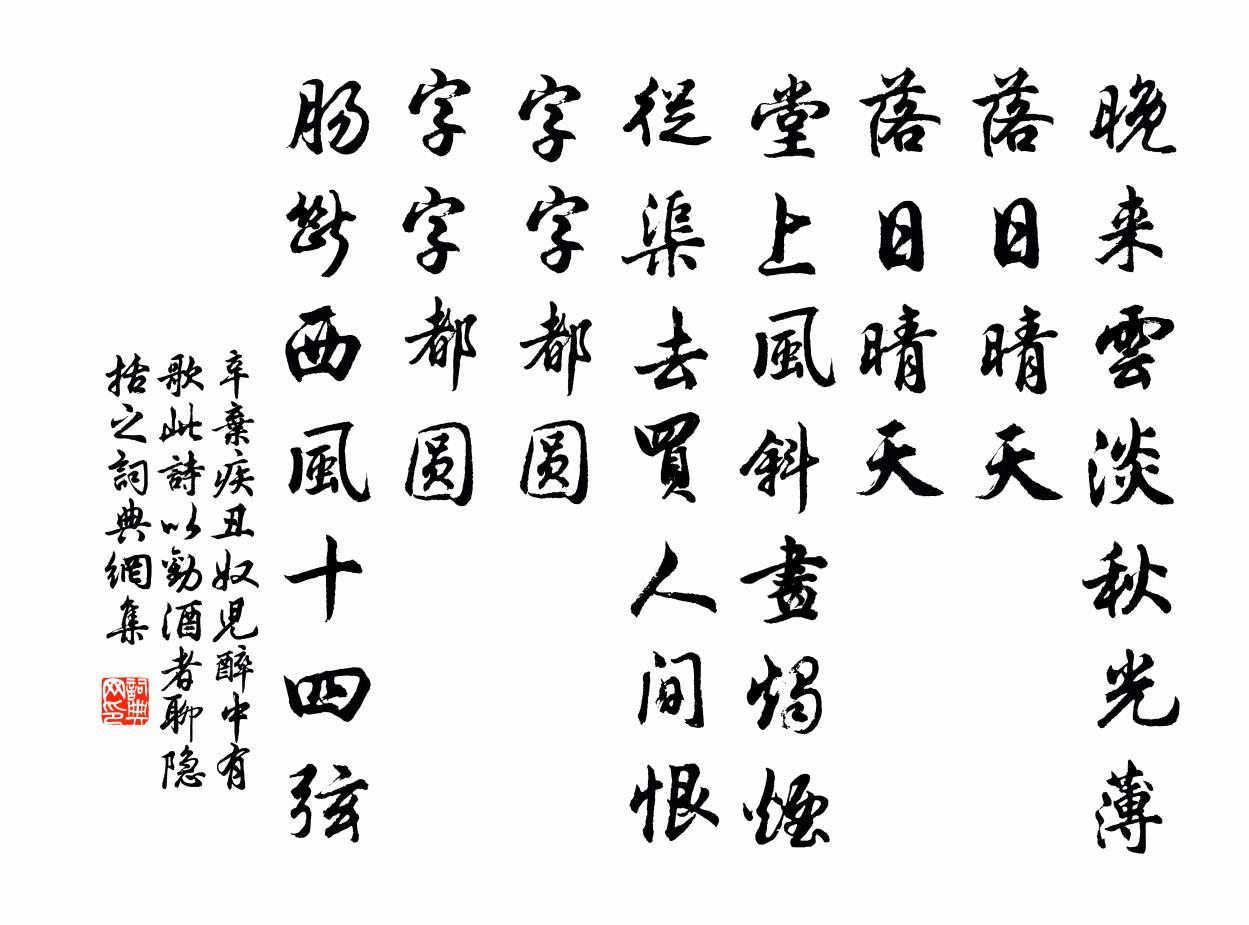 晚来雲淡秋光薄
落日晴天
落日晴天
堂上風斜畫燭煙
從渠去買人间恨
字字都圆
字字都圆
肠斷西風十四弦
辛棄疾丑奴児醉中有
歌此詩以勸酒者聊隐
括之詞典網集
詞典
网印